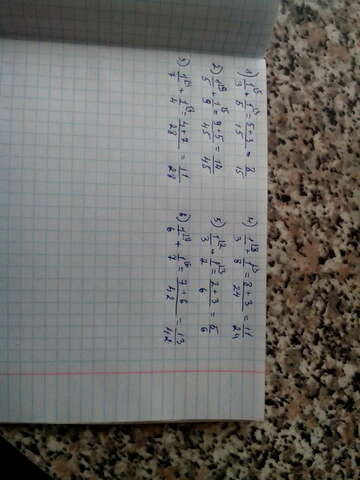 1) 1/3^\5 + 1/5^\3 = 5+3/15 = 8/15
2) 1/5^\9 + 1/9^\5 = 9+5/45 = 14/45
3) 1/7^\4 + 1/4^\7 = 4+7/28 = 11/28
4) 1/3^\8 + 1/8^\3 = 8+3/24 = 11/24
5) 1/3^\2 + 1/2^\3 = 2+3/6 = 5/6
6) 1/6^\7 + 1/7^\6 = 7+6/42 = 13/42